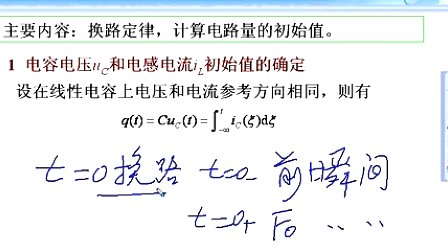 主要内容：换路定律，计算电路量的初始值。
1 电容电压u_C和电感电流i_L初始值的确定
设在线性电容上电压和电流参考方向相同，则有
q(t) = Cu_C(t) = ∫_{-∞}^{t} i_C(ξ)dξ
t=0换路 t=0- 前瞬间
t=0+ 后 〃 〃